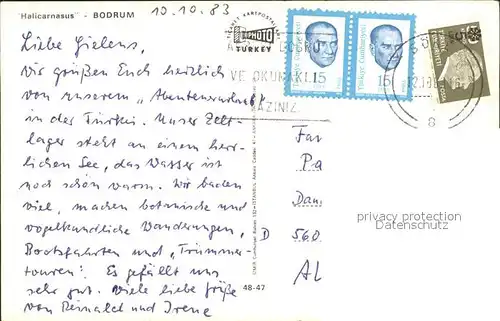 "Halicarnasus" - BODRUM
10.10.83
Liebe Gielens,
wir grüßen Euch herzlich
von unserem „Abenteuerurlaub"
in der Türkei. Unser Zelt-
lager steht an einem herr-
lichen See, das Wasser ist
noch schön warm. Wir baden
viel, machen botanische und
vogelkundliche Wanderungen,
Bootsfahrten und „Trümmer-
touren". Es gefällt uns
sehr gut. Viele liebe Grüße
von Reinalct und Irene
48-47
TURKEY
VE OKUNAKLI
YAZINIZ
Türkiye Cumhuriyeti
15
Türkiye Cumhuriyeti
15
8
Fa
Pa
Dan
D 560
AL
privacy protection
Datenschutz